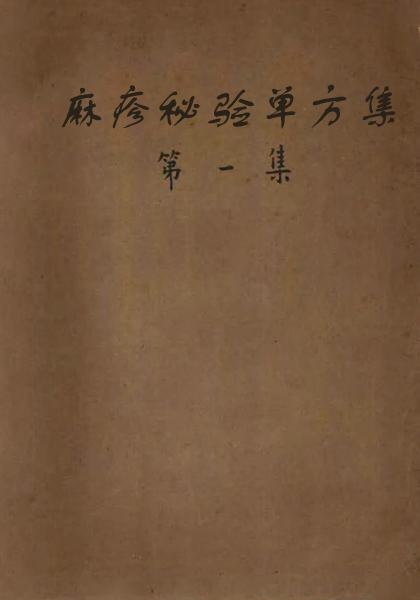 麻疹秘验单方集
第一集